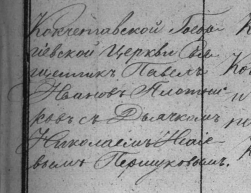 Кокчетавской Геор
гіевской Церкви Свя
щенникъ Павелъ
Ивановъ Плотни
ковъ съ Дьячкомъ
Николаемъ
вымъ Першуковымъ.